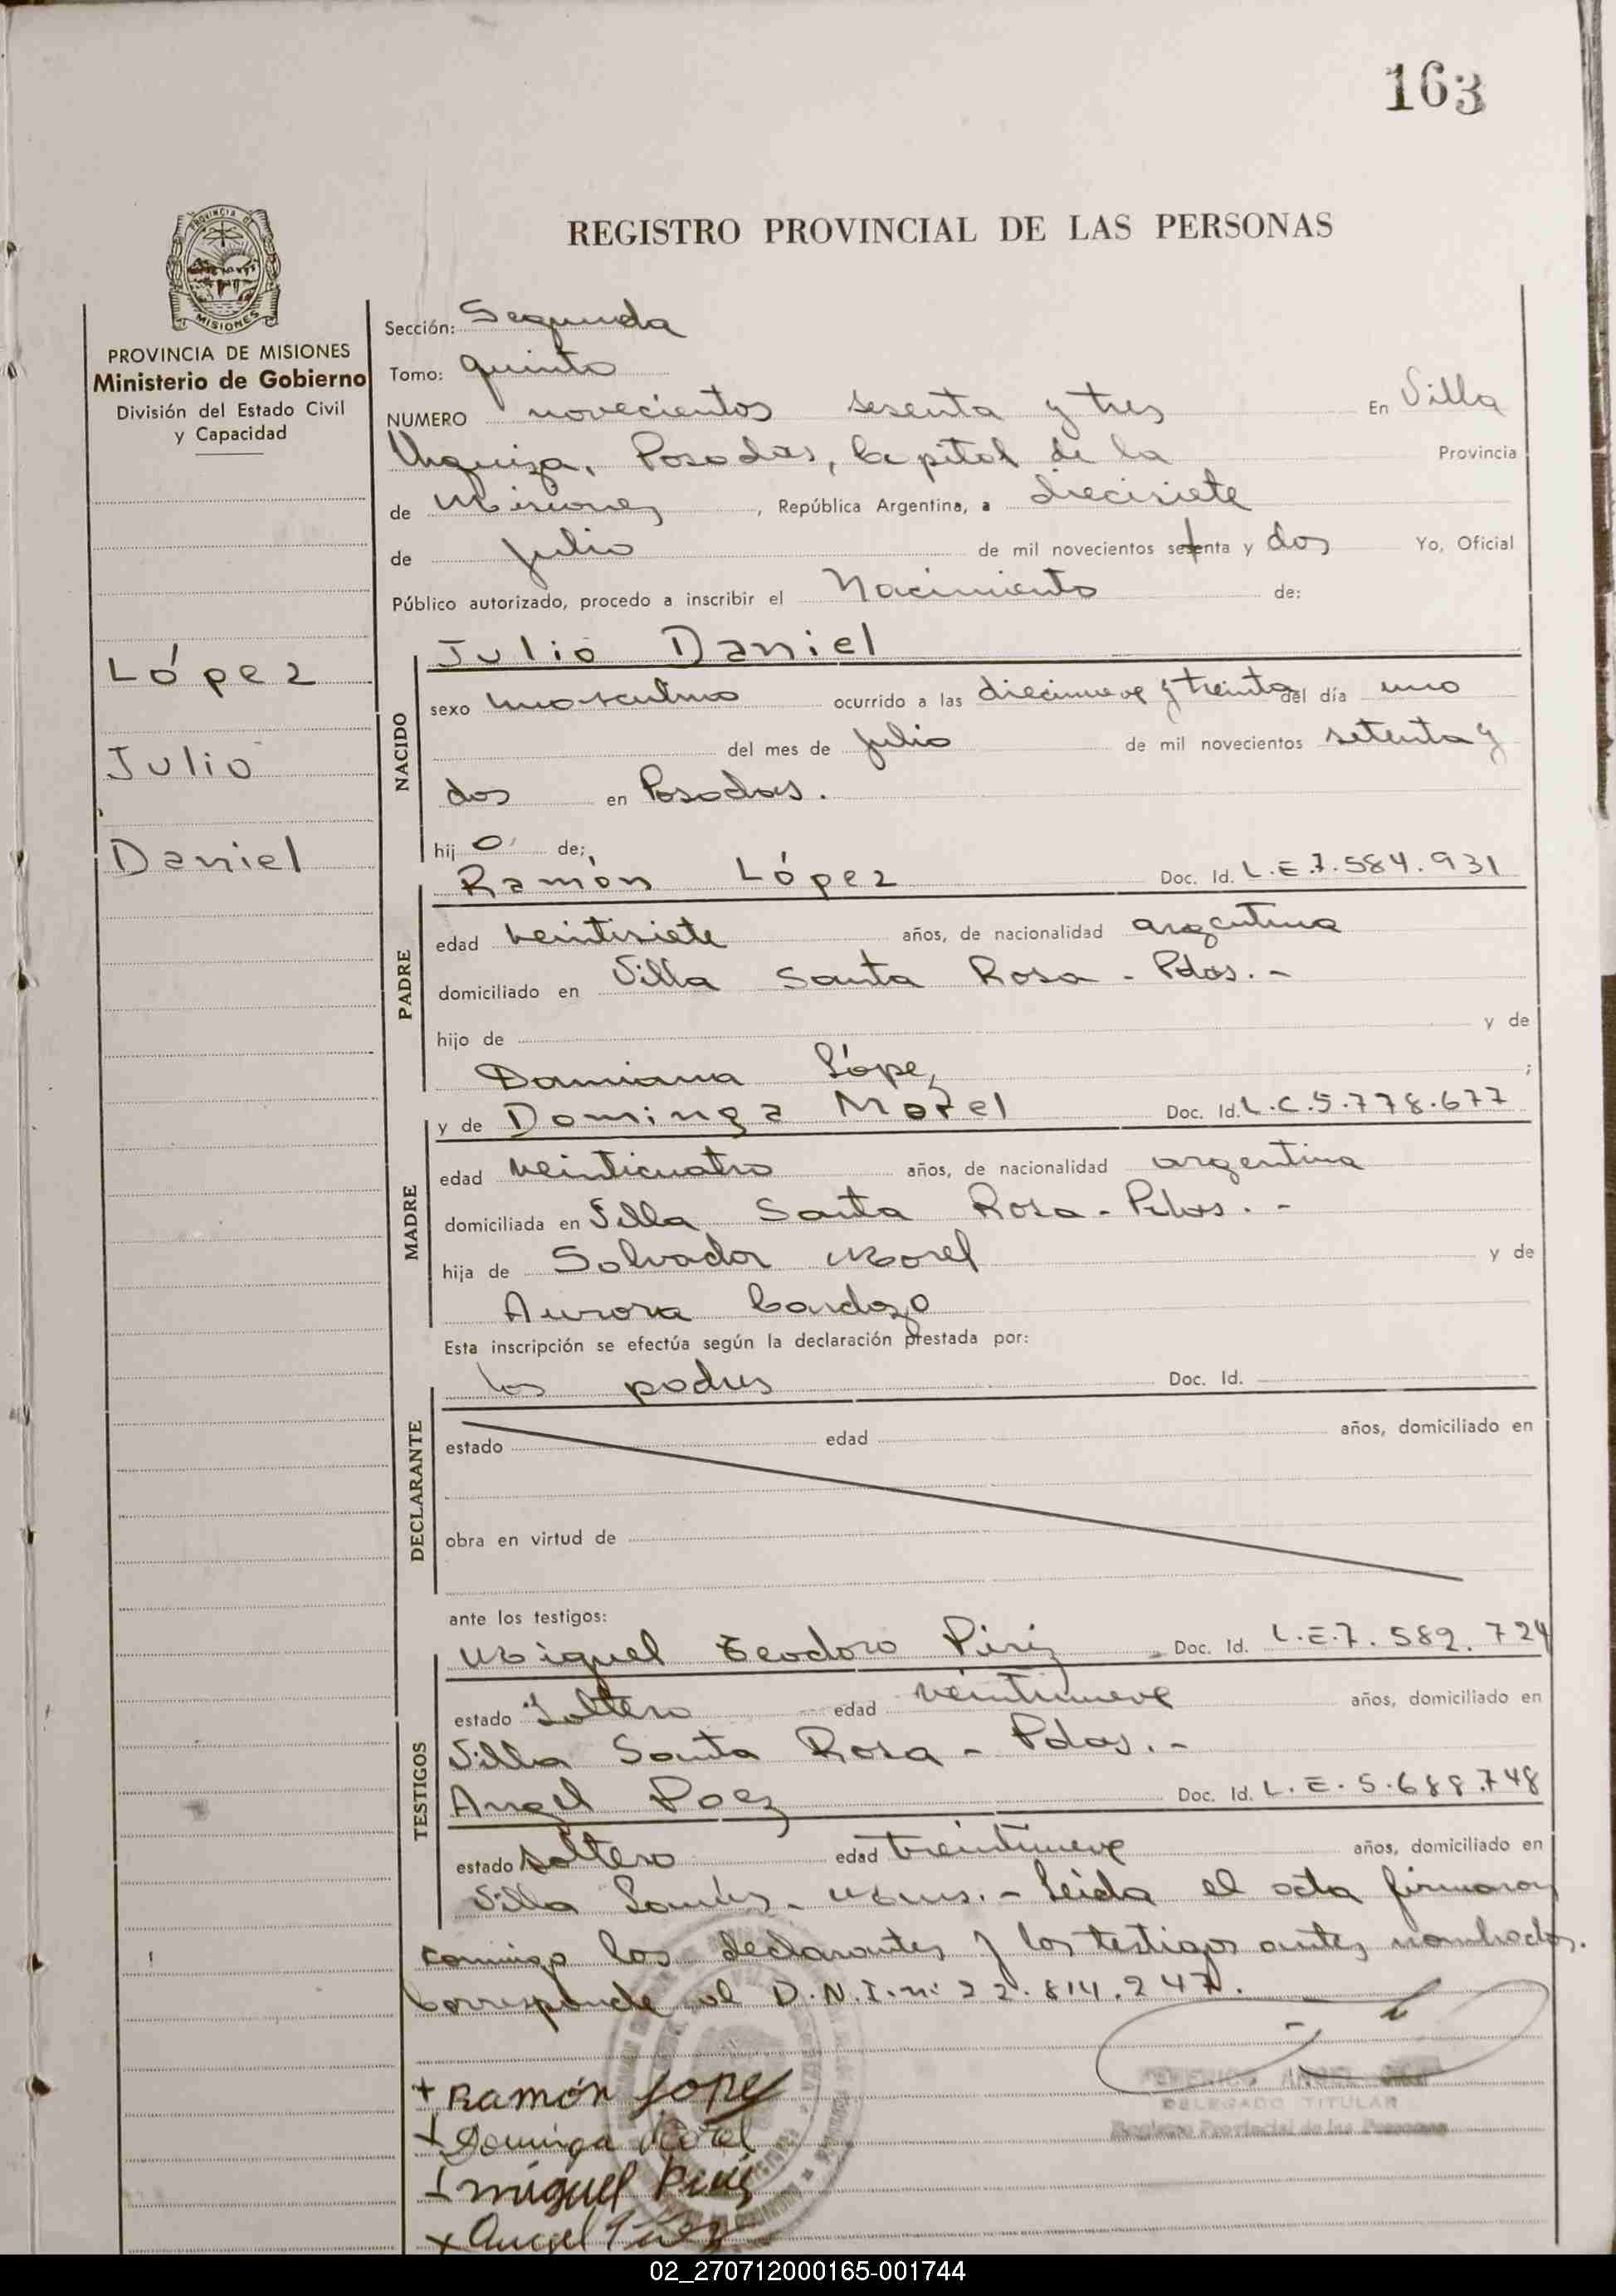 163
REGISTRO PROVINCIAL DE LAS PERSONAS
PROVINCIA DE
MISIONES
PROVINCIA DE MISIONES
Ministerio de Gobierno
División del Estado Civil
y Capacidad
López
Julio
Daniel
Sección: Segunda
Tomo: quinto
NUMERO novecientos sesenta y tres En Villa
Urquiza, Posadas, Capital de la Provincia
de Misiones, República Argentina, a diecisiete
de Julio de mil novecientos setenta y dos Yo, Oficial
Público autorizado, procedo a inscribir el Nacimiento de:
NACIDO
Julio Daniel
sexo masculino ocurrido a las diecinueve y treinta del día uno
del mes de julio de mil novecientos setenta y
dos en Posadas.
hij o de;
PADRE
Ramón López Doc. Id. L.E.7.584.931
edad veintisiete años, de nacionalidad argentina
domiciliado en Villa Santa Rosa - Pdas. -
hijo de y de
Damiana López ;
MADRE
y de Dominga Morel Doc. Id. L.C.5.778.677
edad veinticuatro años, de nacionalidad argentina
domiciliada en Villa Santa Rosa - Pdas. -
hija de Salvador Morel y de
Aurora Cardozo
Esta inscripción se efectúa según la declaración prestada por:
DECLARANTE
los padres Doc. Id.
estado edad años, domiciliado en
obra en virtud de
ante los testigos:
TESTIGOS
Miguel Teodoro Piriz Doc. Id. L.E.7.582.724
estado Soltero edad veintinueve años, domiciliado en
Villa Santa Rosa - Pdas. -
Angel Paez Doc. Id. L.E.5.688.748
estado soltero edad treintinueve años, domiciliado en
Villa - Leida el acta firmaron
conmigo los declarantes y los testigos antes nombrados.
Corresponde al D.N.I. n: 22.814.247.
+ Ramón Lopez
+ Dominga Morel
+ miguel Piriz
x Angel Páez
ANGEL
DELEGADO TITULAR
Registro Provincial de las Personas
02_270712000165-001744